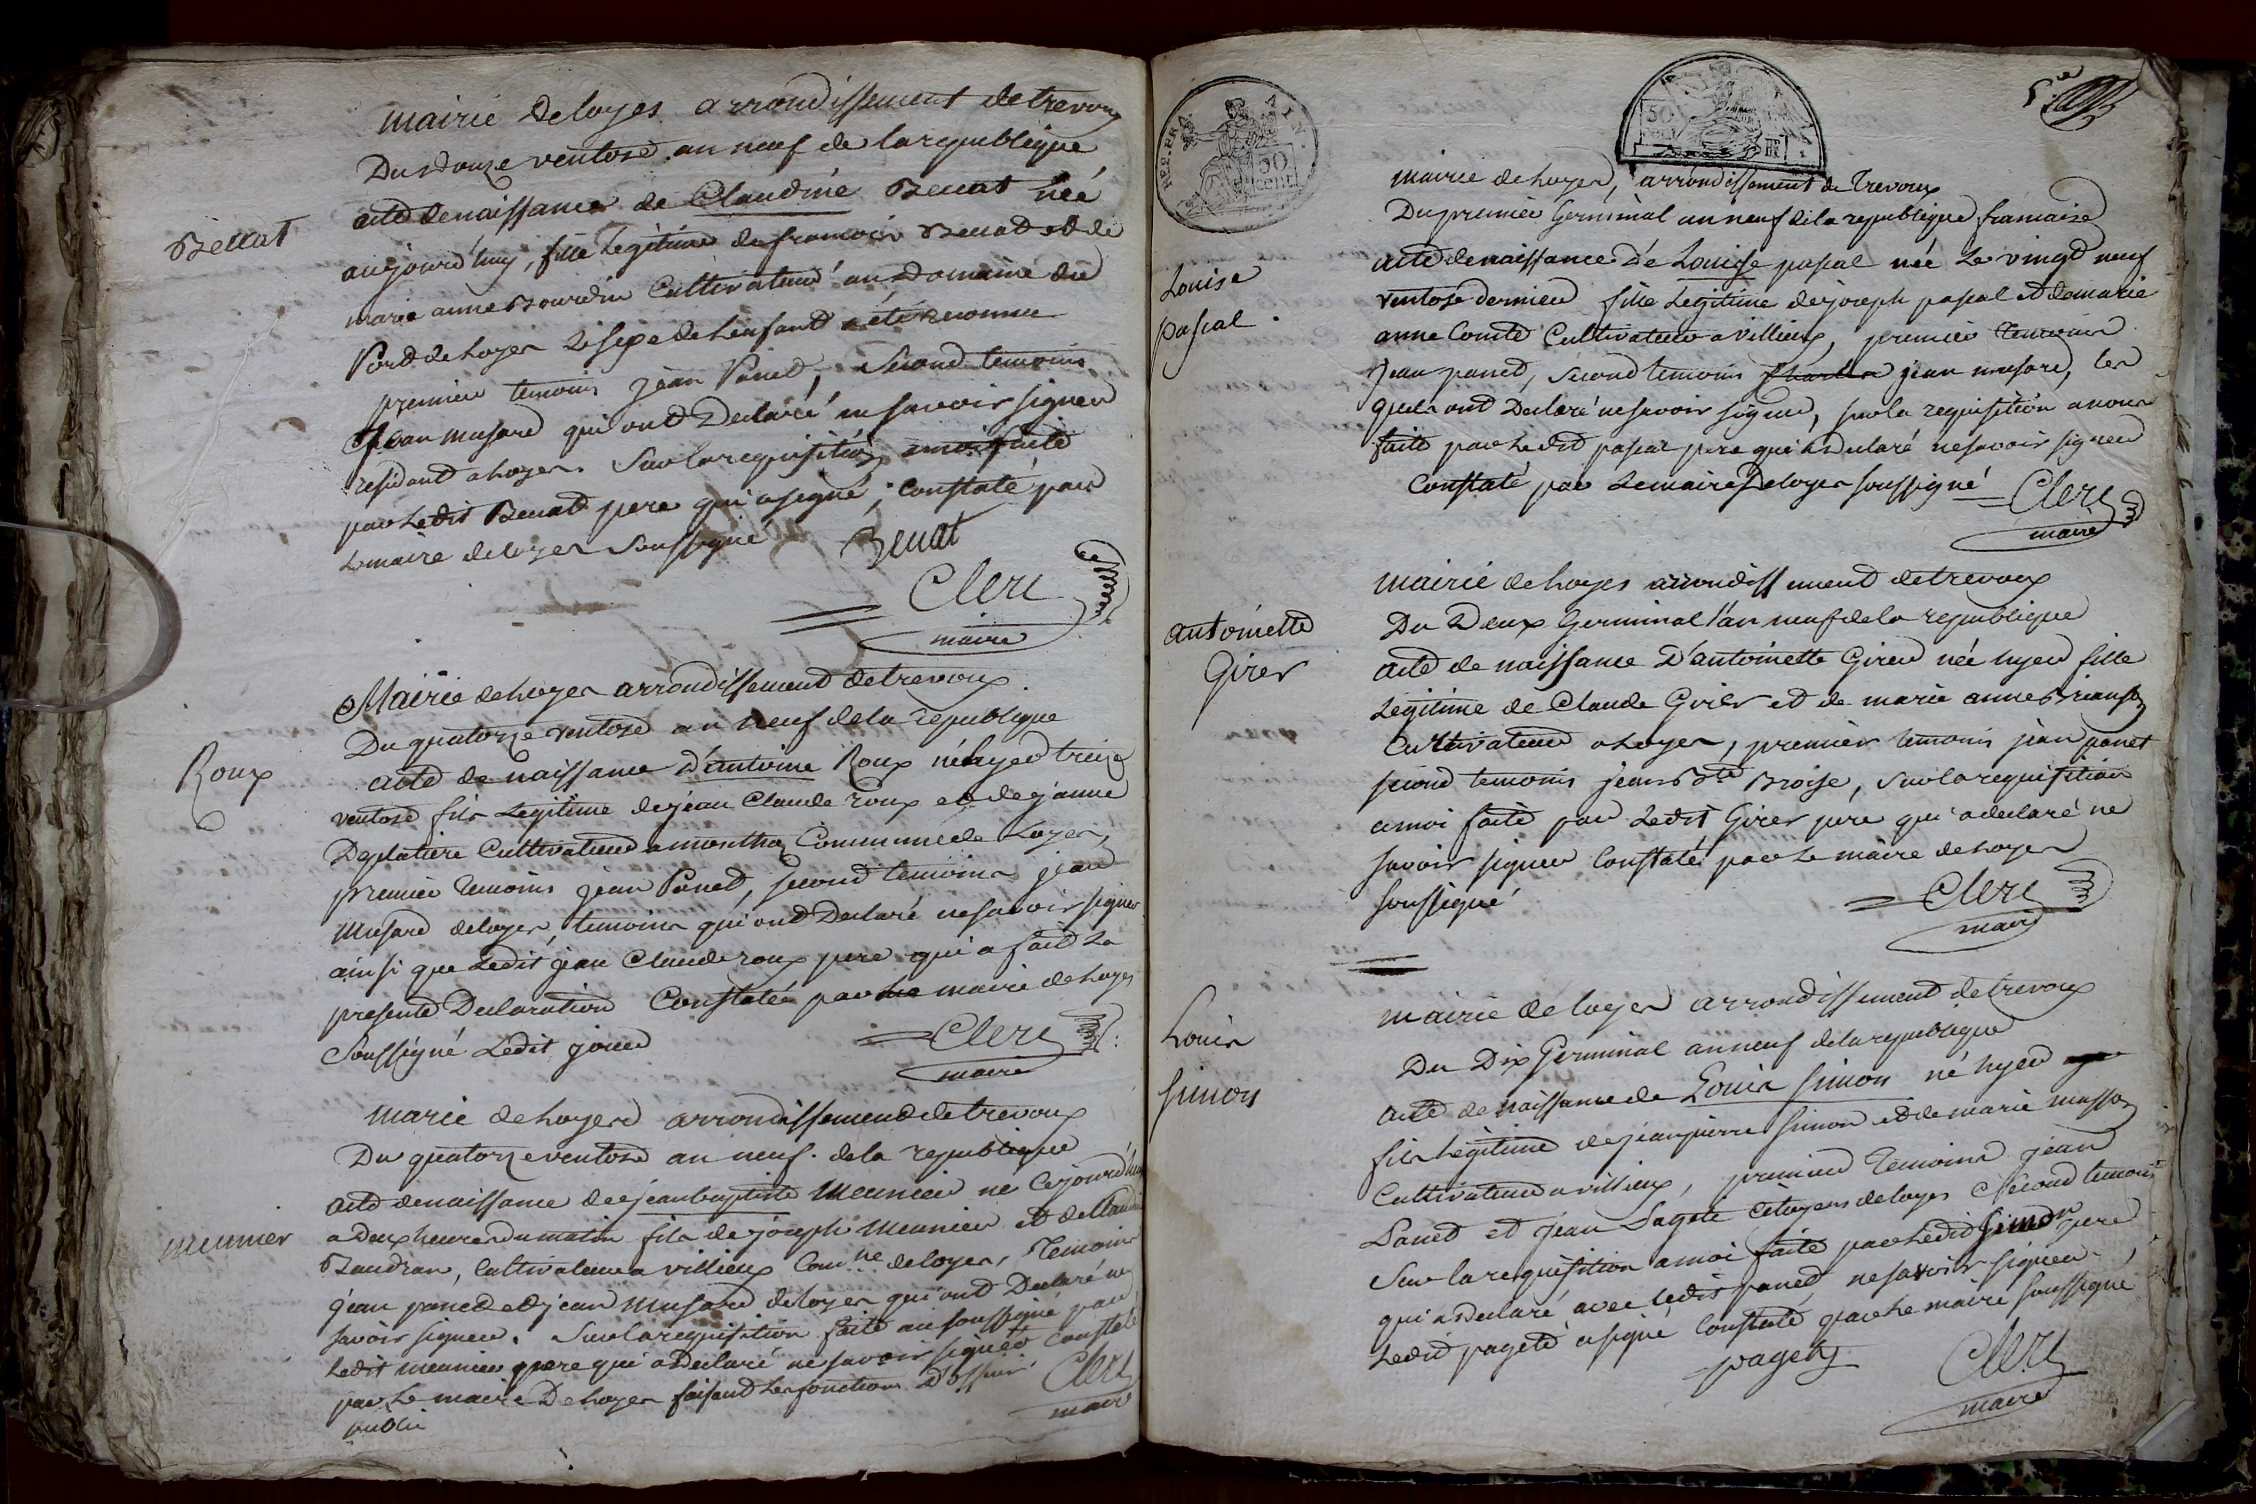 mairie de loyes arrondissement de trevoux
Du douze ventose an neuf de la republique
acte de naissance de Claudine Benat née
Benat
aujourd'huy, fille legitime de francois Benat et de
marie anne Bourdin Cultivateur au Domaine du
Port de Loyes le sexe de l'enfant a été reconnu
premier temoin jean Panet, Second temoins
jean musard qui ont Declaré ne savoir signer
residant a Loyes. Sur la requisition a moi faite
par ledit Benat pere qui a signé, Constaté par
le maire de loyes soussigné Benat
Clerc
maire
Mairie de Loyes arrondissement de trevoux
Du quatorze ventose an neuf de la republique
Roux
acte de naissance d'antoine Roux né hyer treize
ventose fils Legitime de jean Claude roux et de jeanne
Deplatiere Cultivateur a monthoz Commune de Loyes,
premier temoins jean Panet, second temoins jean
musard de loyes, temoins qui ont Declaré ne savoir signer
ainsi que Ledit jean Claude roux pere qui a fait la
presente Declaration Constatée par le maire de Loyes
Soussigné Ledit jour
Clerc
maire
marie de Loyes arrondissement de trevoux
Du quatorze ventose an neuf. de la republique
acte de naissance de jean baptiste Meunier né Cejourd'hui
meunier
a Deux heures du matin fils de joseph Meunier et de
Baudran, Cultivateur a villieux Com.ne de loyes, Temoins
jean panet et jean musard de loyes qui ont Declaré ne
savoir signer. Sur la requisition faite au soussigné par
Ledit meunier pere qui a Declaré ne savoir signer Constaté
par Le maire De Loyes faisant les fonctions D'officier
public
Clerc
maire
REP. FRA. AIN.
50 cent
50
5e
mairie de Loyes, arrondissement de Trevoux
Du premier Germinal an neuf de la republique francaise
Louise
pascal.
acte de naissance de Louise pascal née Le vingt neuf
ventose dernier fille Legitime de joseph pascal et de marie
anne Comte Cultivateur a villieux, premier temoins
jean panet, second temoins Charles jean musard, les
quels ont Declaré ne savoir signer, sur la requisition a nous
faite par Ledit pascal pere qui a Declaré ne savoir signer
Constaté par Le maire De loyes soussigné
Clerc
maire
mairie de Loyes arrondissement de trevoux
Du Deux Germinal l'an neuf de la republique
antoinette
Girer
acte de naissance D'antoinette Girer née hyer fille
Legitime de Claude Girer et de marie anne
Cultivateur a Loyes, premier temoins jean panet
second temoins jean Bte Broise, sur la requisition
a moi faite par Ledit Girer pere qui a declaré ne
savoir signer Constaté par Le maire de Loyes
soussigné
Clerc
maire
mairie de loyes arrondissement de trevoux
Du Dix Germinal an neuf de la republique
Louis
simon
acte de naissance de Louis simon né hyer
fils Legitime de jean pierre simon et de marie masson
Cultivateur a villieux, premier Temoins jean
Panet et jean Pagete Citoyens de loyes Second temoins
Sur la requisition a moi faite par Ledit Simon pere
qui a Declaré avec ledit panet ne savoir signer,
Ledit pagete a signé Constaté par le maire soussigné
pagety
Clerc
maire